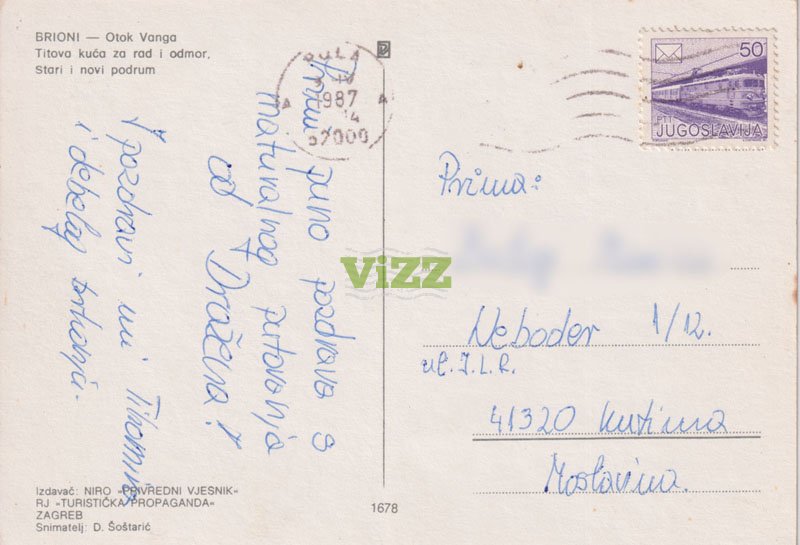 BRIONI — Otok Vanga
Titova kuća za rad i odmor,
Stari i novi podrum
PULA
1987
14
52000
50
PTT
JUGOSLAVIJA
puno pozdrava s
maturalnog putovanja
od Dražena!
I pozdravi mi Tihomira
i debeloj
Prima:
Neboder 1/12.
ul. I. L. R.
41320 Kutina
Moslavina.
ViZZ
Izdavač: NIRO »PRIVREDNI VJESNIK«
RJ »TURISTIČKA PROPAGANDA«
ZAGREB
Snimatelj: D. Šoštarić
1678